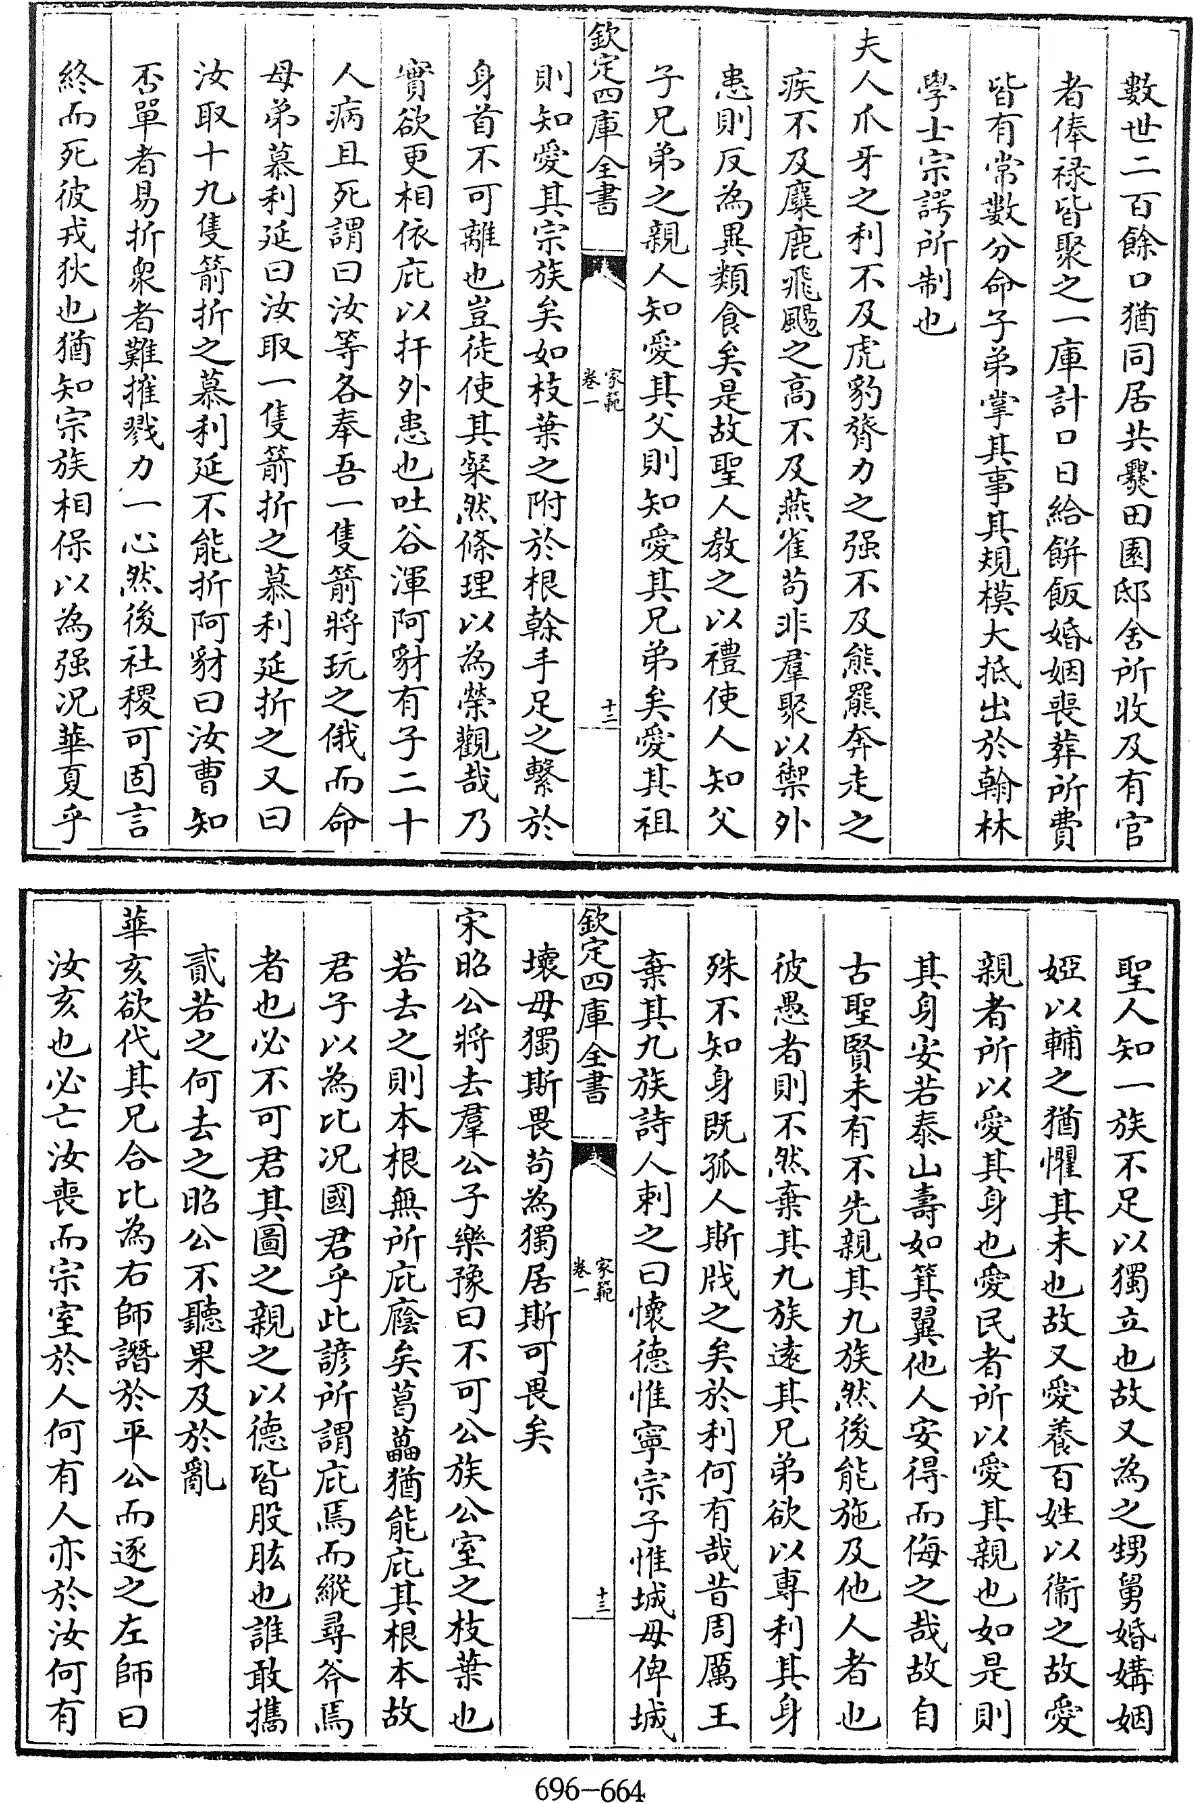 數世二百餘口猶同居共爨田園邸舍所收及有官
者俸祿皆聚之一庫計口日給餅飯婚姻喪葬所費
皆有常數分命子弟掌其事其規模大抵出於翰林
學士宗諤所制也
夫人爪牙之利不及虎豹膂力之强不及熊羆奔走之
疾不及麋鹿飛颺之高不及燕雀苟非羣聚以禦外
患則反為異類食矣是故聖人教之以禮使人知父
子兄弟之親人知愛其父則知愛其兄弟矣愛其祖
欽定四庫全書
家範
卷一
十三
則知愛其宗族矣如枝葉之附於根榦手足之繫於
身首不可離也豈徒使其粲然條理以為榮觀哉乃
實欲更相依庇以扞外患也吐谷渾阿豺有子二十
人病且死謂曰汝等各奉吾一隻箭將玩之俄而命
母弟慕利延曰汝取一隻箭折之慕利延折之又曰
汝取十九隻箭折之慕利延不能折阿豺曰汝曹知
否單者易折衆者難摧戮力一心然後社稷可固言
終而死彼戎狄也猶知宗族相保以為强况華夏乎
聖人知一族不足以獨立也故又為之甥舅婚媾姻
婭以輔之猶懼其未也故又愛養百姓以衞之故愛
親者所以愛其身也愛民者所以愛其親也如是則
其身安若泰山壽如箕翼他人安得而侮之哉故自
古聖賢未有不先親其九族然後能施及他人者也
彼愚者則不然棄其九族遠其兄弟欲以專利其身
殊不知身既孤人斯戕之矣於利何有哉昔周厲王
棄其九族詩人刺之曰懷德惟寧宗子惟城毋俾城
欽定四庫全書
家範
卷一
十三
壞毋獨斯畏苟為獨居斯可畏矣
宋昭公將去羣公子樂豫曰不可公族公室之枝葉也
若去之則本根無所庇廕矣葛藟猶能庇其根本故
君子以為比况國君乎此諺所謂庇焉而縱尋斧焉
者也必不可君其圖之親之以德皆股肱也誰敢攜
貳若之何去之昭公不聽果及於亂
華亥欲代其兄合比為右師譖於平公而逐之左師曰
汝亥也必亡汝喪而宗室於人何有人亦於汝何有
696-664